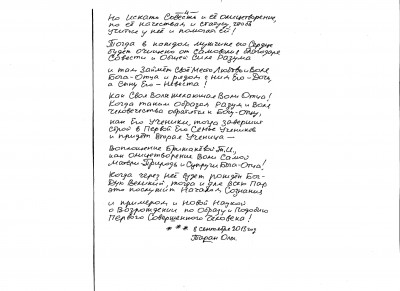 -4-
Но искать Совесть и её олицетворение,
по её качествам и статусу, чтоб
учиться у неё и помогать ей!
Тогда в каждом мужчине его Сердце
будет очищено от самомнения благодаря
Совести и Общей Силе Разума
и там займёт Своё Место Любовь и Воля
Бога-Отца и рядом с ним Его-Дочь,
а Сыну Его - Невеста!
как Своя Воля желающая Воли Отца!
Когда таким образом Разум и Воля
человечества обратятся к Богу-Отцу,
как Его Ученики, тогда завершит
строй в Первой Его Семье Учеников
и придёт Вторая Ученица -
Воплощение
как олицетворение Воли Самой
Матери Природы и Супруги Бога-Отца!
Когда через неё будет пройден Бог-
Дух Великий, тогда и для всех Пар
это послужит Началом Сознания
и примером и Новой Наукой
о Возрождении по Образу и Подобию
Первого Совершенного Человека!
* * * 8 сентября 2013 год
Таран Оль.